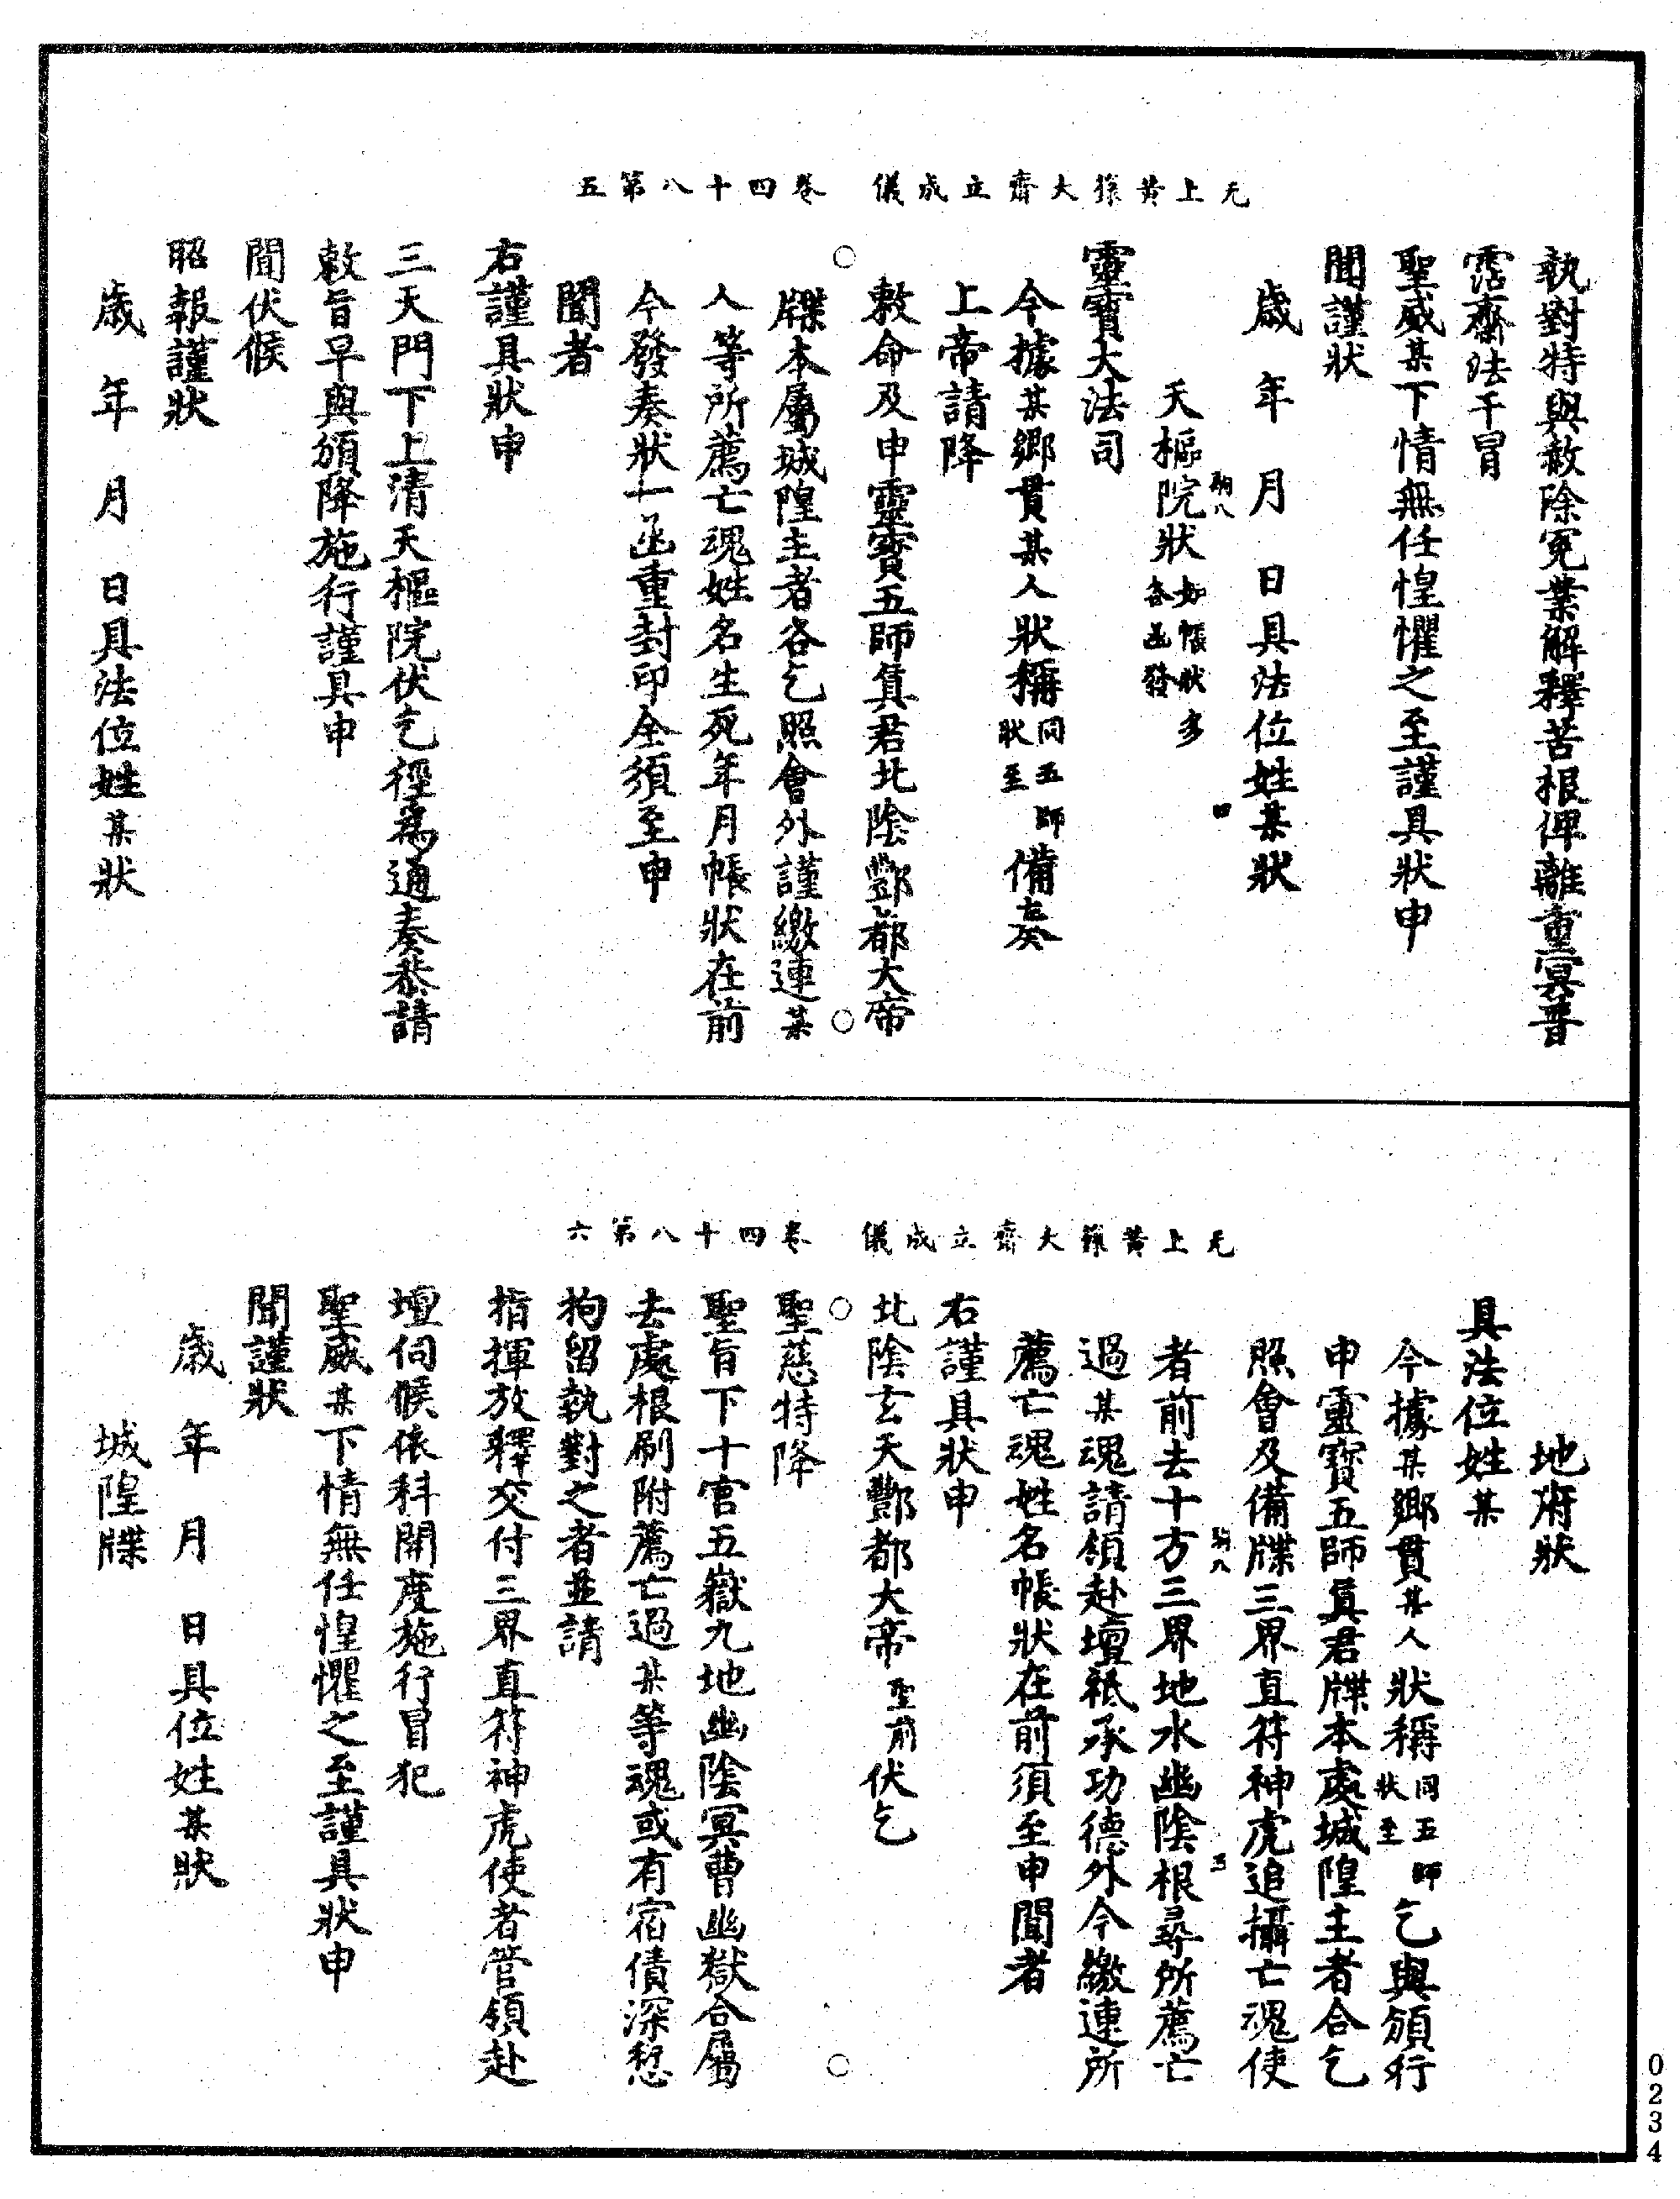 无上黃籙大齋立成儀　卷四十八第五
執對特與赦除冤業解釋苦根俾離重冥普
霑齋法干冒
聖威某下情無任惶懼之至謹具狀申
聞謹狀
歲　年　月　日具法位姓某狀
四
天樞院狀如帳狀多各函發
靈寶大法司
今據某鄉貫某人狀稱同五師狀至備奏
上帝請降
敕命及申靈寶五師真君北陰酆都大帝
牒本屬城隍主者各乞照會外謹繳連某
人等所薦亡魂姓名生死年月帳狀在前
今發奏狀一函重封印全須至申
聞者
右謹具狀申
三天門下上清天樞院伏乞徑為通奏恭請
敕旨早與頒降施行謹具申
聞伏候
昭報謹狀
歲　年　月　日具法位姓某狀
无上黃籙大齋立成儀　卷四十八第六
地府狀
具法位姓某
今據某鄉貫某人狀稱同五師狀至乞與頒行
申靈寶五師真君牒本處城隍主者合乞
照會及備牒三界直符神虎追攝亡魂使
者前去十方三界地水幽陰根尋所薦亡
過某魂請領赴壇祇承功德外今繳連所
薦亡魂姓名帳狀在前須至申聞者
右謹具狀申
北陰玄天酆都大帝聖前伏乞
聖慈特降
聖旨下十宮五嶽九地幽陰冥曹幽獄合屬
去處根刷附薦亡過某等魂或有宿債深愆
拘留執對之者並請
指揮放釋交付三界直符神虎使者管領赴
壇伺候依科開度施行冒犯
聖威某下情無任惶懼之至謹具狀申
聞謹狀
歲　年　月　日具位姓某狀
城隍牒
0234